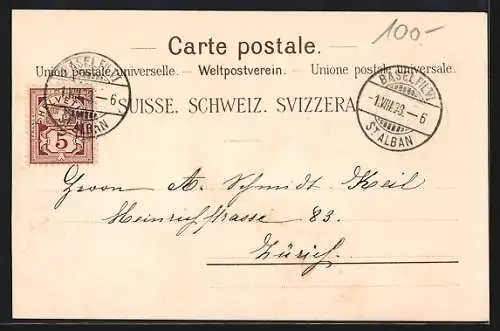 100-
Carte postale.
Union postale universelle. — Weltpostverein. — Unione postale universale.
SUISSE. SCHWEIZ. SVIZZERA.
BASEL FIL. VI
-1.VIII.99.-6
ST ALBAN
5
BASEL FIL. VI
-1.VIII.99.-6
ST ALBAN
Herrn A. Schmidt Keil
Heinrichstrasse 83.
Zürich.